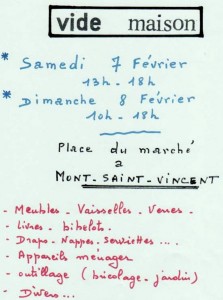 vide maison
* Samedi 7 Février
13h - 18h
* Dimanche 8 Février
10h - 18h
Place du marché
a
MONT-SAINT-VINCENT
- Meubles - Vaisselles - Verres -
- Livres - bibelots -
- Draps - Nappes - Serviettes ....
- Appareils menager
- outillage ( bricolage - jardin )
- Divers ...